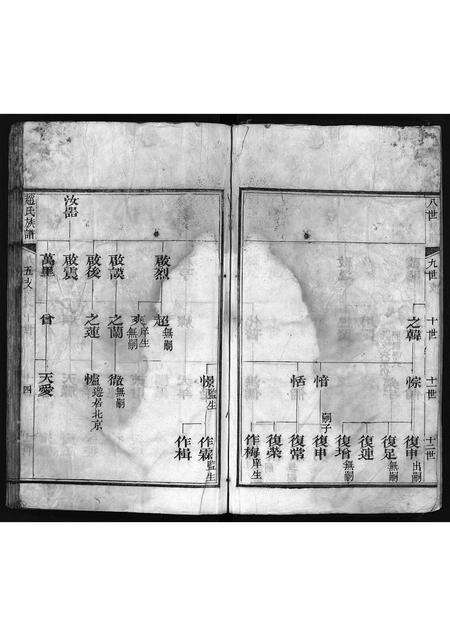 八世
九世
十世
十一世
十二世
之韓
悰
復申 出嗣
復足 無嗣
復連
復增 無嗣
愔
嗣子
復申
恬
復常
復榮
作梅 庠生
憬 監生
作霖 監生
作楫
啟烈
超 無嗣
庠生
無嗣
啟謨
之蘭
無嗣
啟後
之蓮
遷居北京
汝
啟震
萬里
曾
天愛
趙氏族譜
四